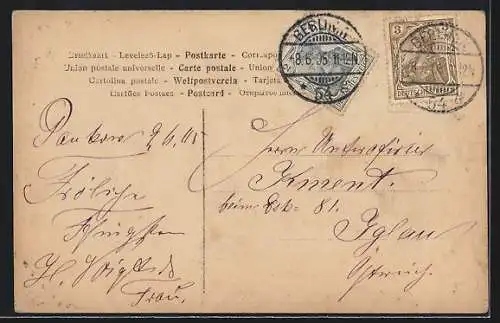 Brefkaart - Levelező-Lap - Postkarte - Correspon
Union postale universelle - Carte postale - Union
Cartolina postale - Weltpostverein - Tarjeta
Cartões Postaes - Postcard -
BERLIN
8.6.05.11-12N
54
3
DEUTSCHES
BERLIN
12N
54
Pankow 9/6.05
Fröliche
Pfingsten
H. Voigt u.
Frau.
Herrn Unteroffizier
Kment.
beim 81.
Iglau
Östreich.